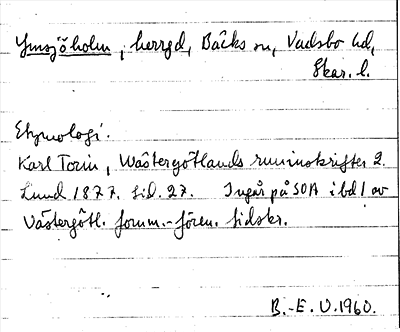 Ymsjöholm, herrgd, Bäcks sn, Vadsbo hd,
Skar. l.
Etymologi.
Karl Torin, Wästergötlands runinskrifter 2.
Lund 1877. Sid. 27. Ingår på SOA i bd 1 av
Västergötl. fornm.-fören. tidskr.
B.-E. U. 1960.